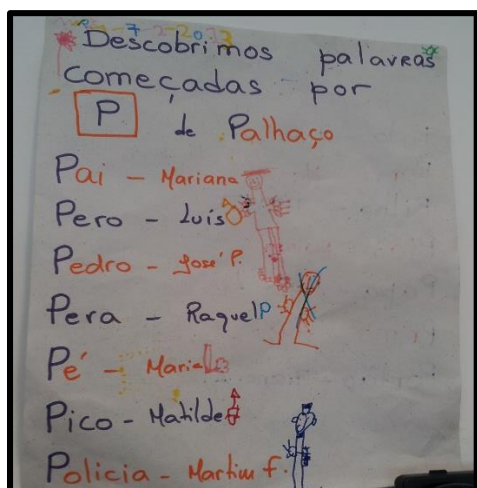 Descobrimos palavras
começadas por
P de Palhaço
Pai - Mariana
Pero - Luís
Pedro - José P.
Pera - Raquel P
Pé - Maria
Pico - Matilde
Policia - Martim F.